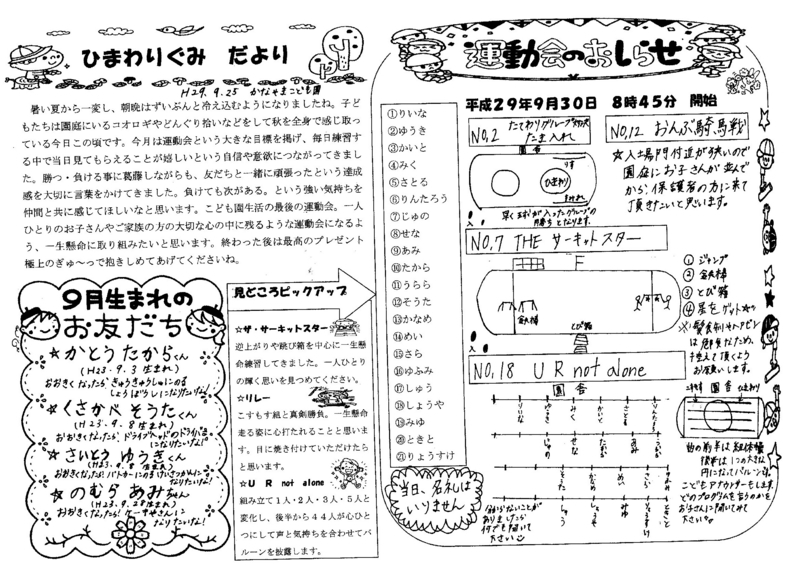 ひまわりぐみ だより
H29.9.25 かなやまこども園
暑い夏から一変し、朝晩はずいぶんと冷え込むようになりましたね。子ど
もたちは園庭にいるコオロギやどんぐり拾いなどをして秋を全身で感じ取っ
ている今日この頃です。今月は運動会という大きな目標を掲げ、毎日練習す
る中で当日見てもらえることが嬉しいという自信や意欲につながってきまし
た。勝つ・負ける事に葛藤しながらも、友だちと一緒に頑張ったという達成
感を大切に言葉をかけてきました。負けても次がある。という強い気持ちを
仲間と共に感じてほしいなと思います。こども園生活の最後の運動会。一人
ひとりのお子さんやご家族の方の大切な心の中に残るような運動会になるよ
う、一生懸命に取り組みたいと思います。終わった後は最高のプレゼント
極上のぎゅ～っで抱きしめてあげてくださいね。
9月生まれの
お友だち
☆かとうたからくん
(H23.9.3生まれ)
おおきくなったら ぎゅうきゅうしゃにのる
しょうぼうしになりたいな!
☆くさかべ そうたくん
(H23.9.8生まれ)
おおきくなったら、ドライブヘッドのドライバー
になりたいな!
☆さいとう ゆうきくん
(H23.9.8生まれ)
おおきくなったら、パトカーにのるけいさつかんになりたいな!
☆のむら あみちゃん
(H23.9.28生まれ)
おおきくなったら、ケーキやさんに
なりたいな!
見どころピックアップ
☆ザ・サーキットスター
逆上がりや跳び箱を中心に一生懸
命練習してきました。一人ひとり
の輝く思いを見つめてください。
☆リレー
こすもす組と真剣勝負。一生懸命
走る姿に心打たれることと思いま
す。目に焼き付けていただけたら
と思います。
☆UR not alone
組み立て1人・2人・3人・5人と
変化し、後半から44人が心ひと
つにして声と気持ちを合わせてバ
ルーンを披露します。
運動会のおしらせ
平成29年9月30日 8時45分 開始
①りいな
②ゆうき
③かいと
④みく
⑤さとる
⑥りんたろう
⑦じゅの
⑧せな
⑨あみ
⑩たから
⑪うらら
⑫そうた
⑬かなめ
⑭めい
⑮さら
⑯ゆふみ
⑰しゅう
⑱しょうや
⑲みゆ
⑳ときと
㉑りょうすけ
当日、名札は
いりません
NO.2 たてわりグループ対抗
玉入れ
園舎
ひまわり
早く玉が入ったグループの
勝ちとなります。
NO,12 おんぶ騎馬戦
☆入場門付近が狭いので
園庭にお子さんが並んで
から、保護者の方に来て
頂きたいと思います。
NO,7 THE サーキットスター
鉄棒
とび箱
① ジャンプ
② 鉄棒
③ とび箱
④ 星をゲット☆
NO,18 U R not alone
園舎
園舎 ひまわり
曲の前半は組体操
後半は1つの大きな
円になってバルーン。
こどもアナウンサーもします。
どのプログラムを言うのかを
お子さんに聞いてみて
下さい。
分からないことが
ありましたら
何でも聞いて
下さい